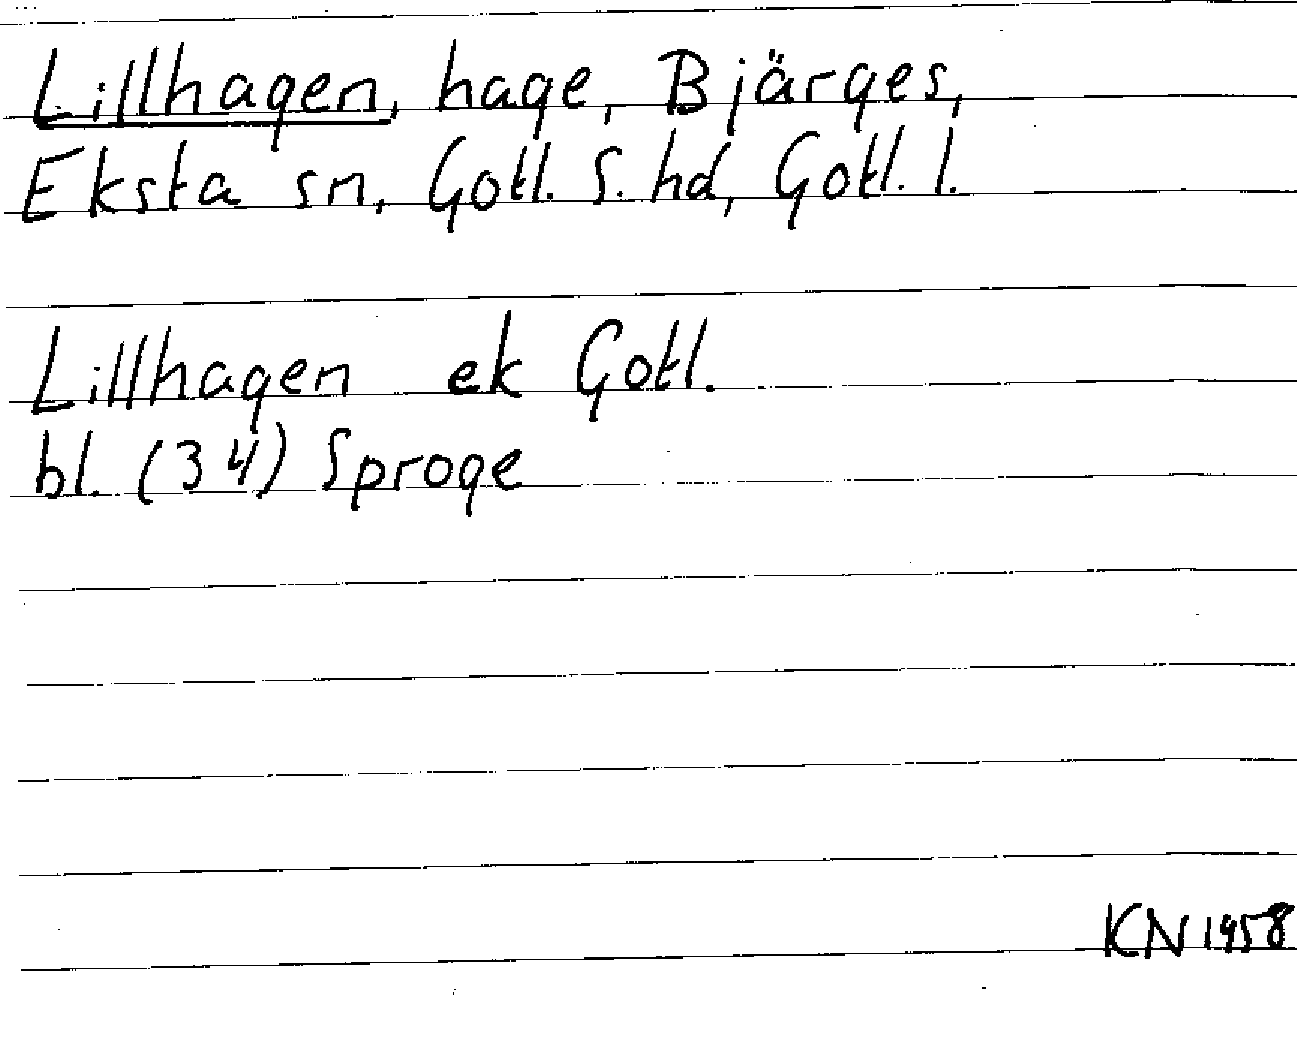 Lillhagen, hage, Bjärges,
Eksta sn, Gotl. S. hd, Gotl. l.
Lillhagen ek Gotl.
bl. (34) Sproge
KN 1958